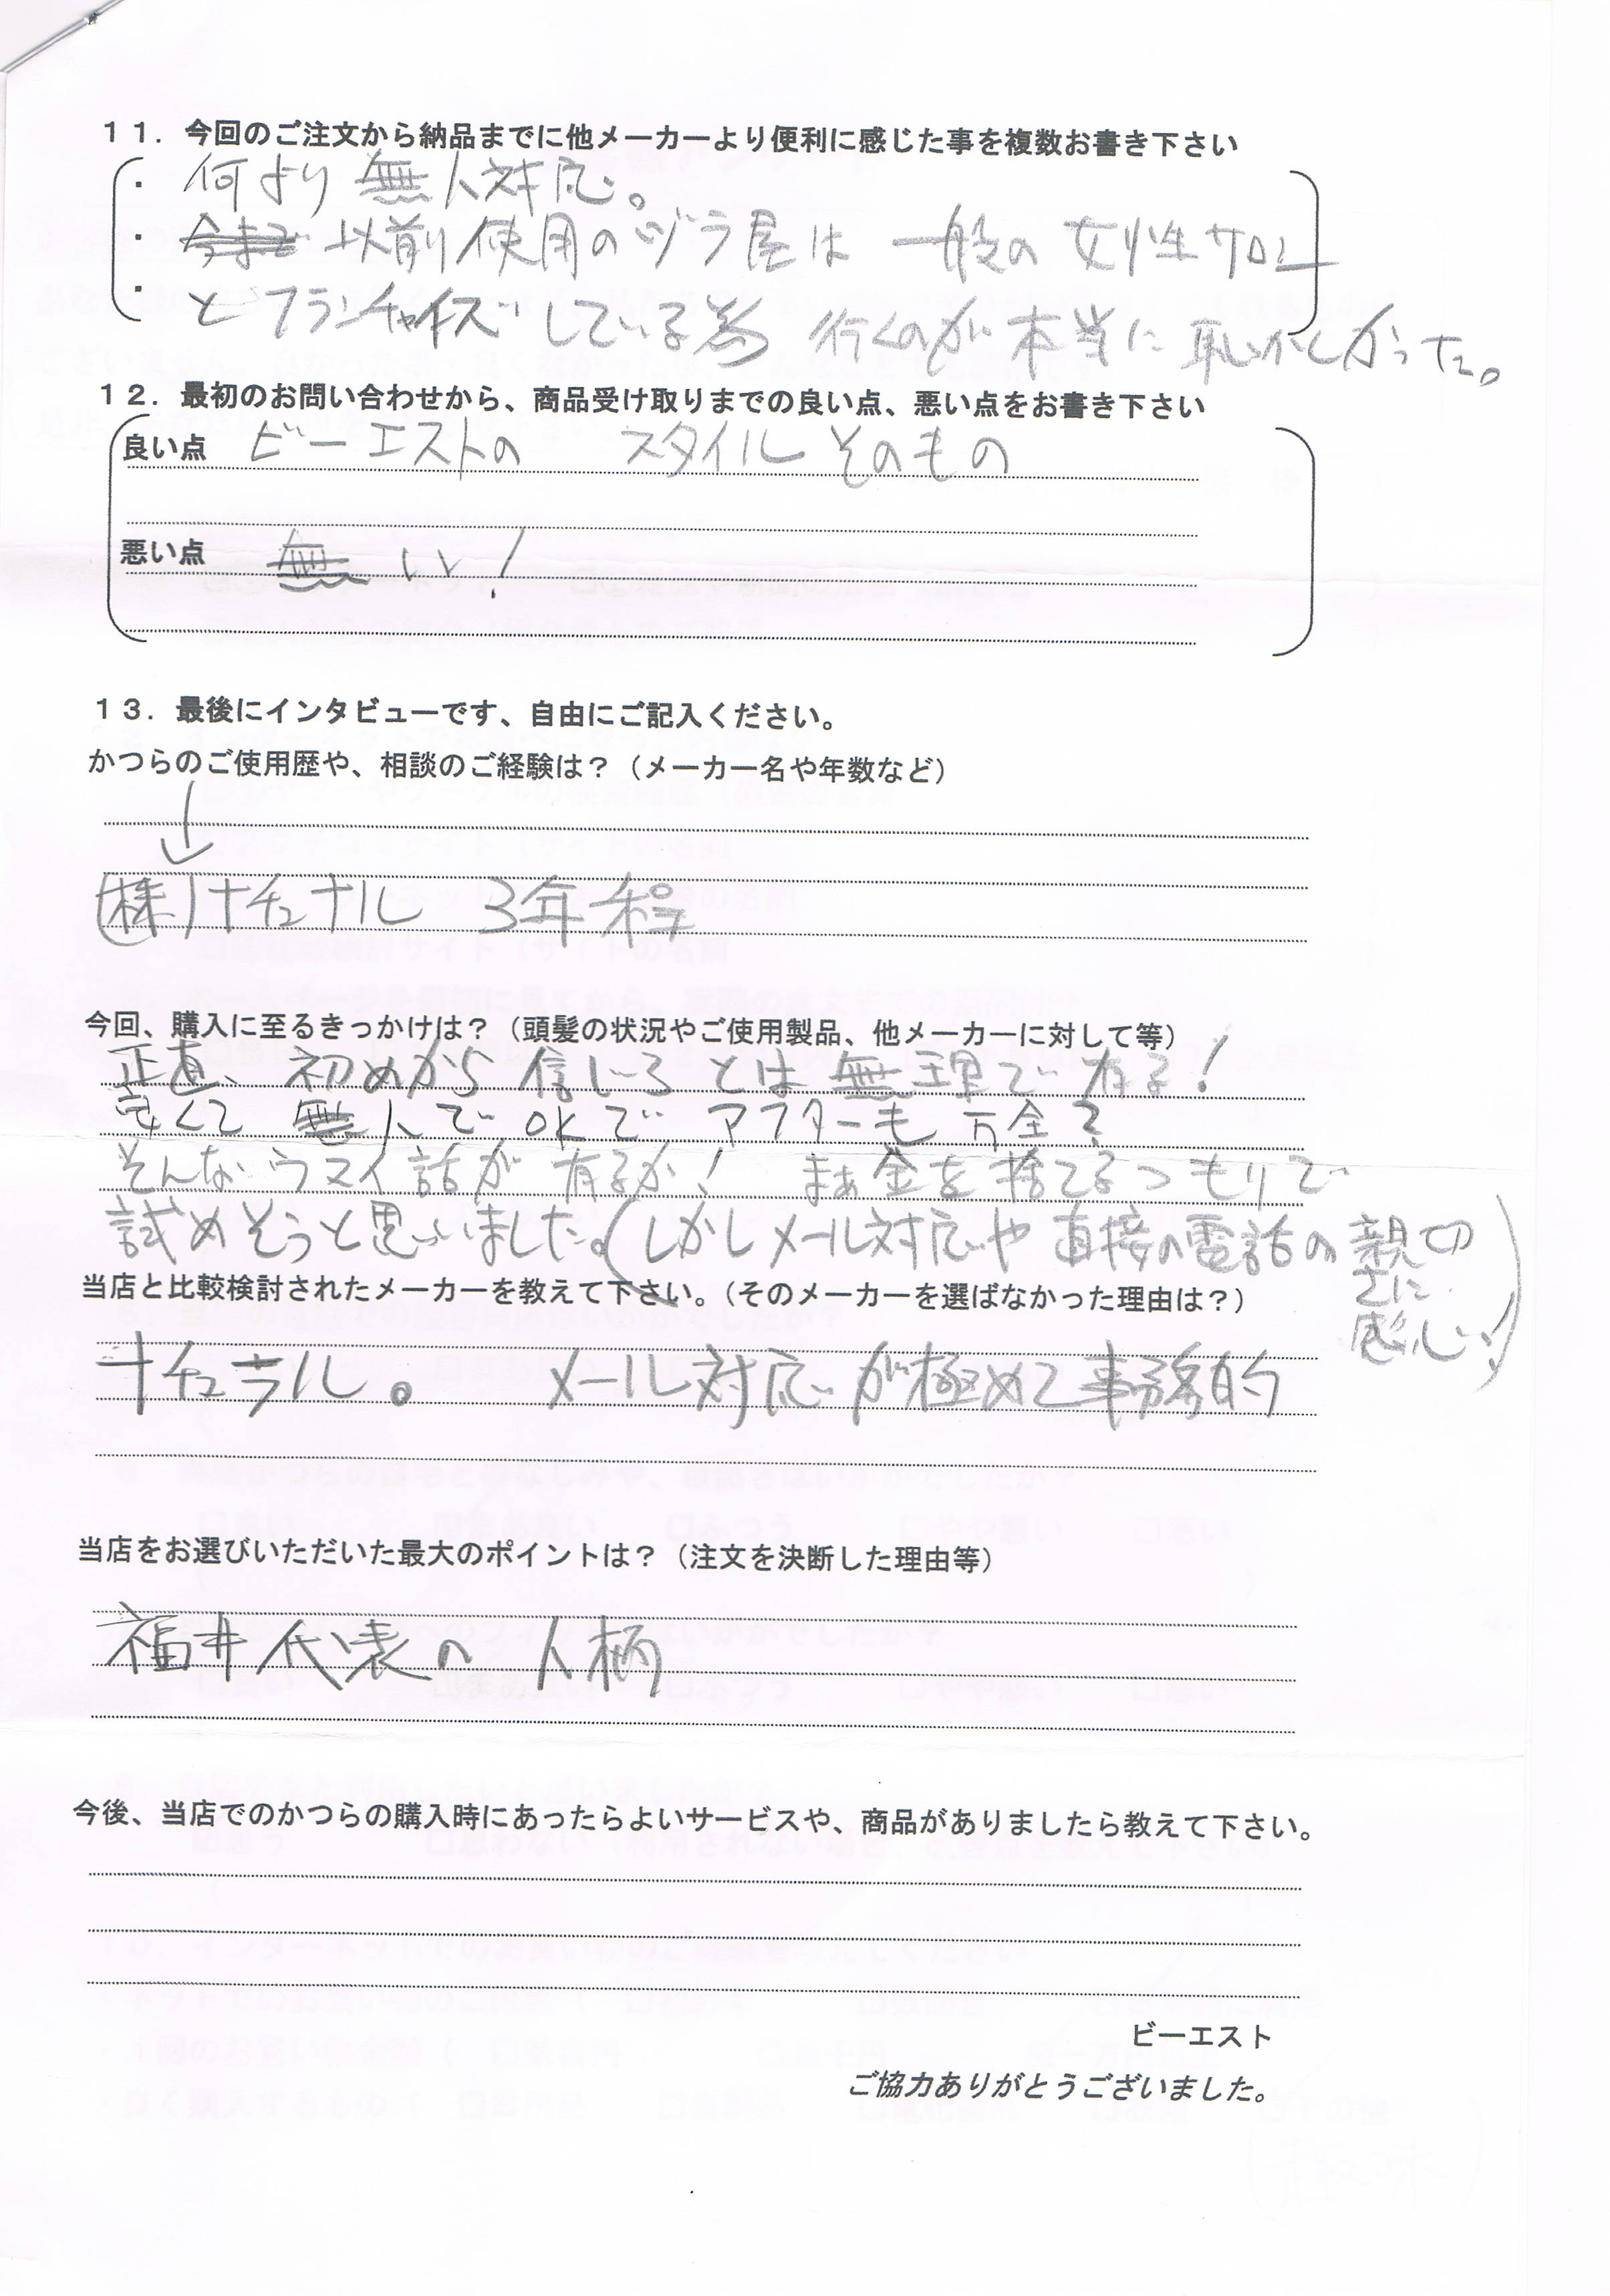 １１．今回のご注文から納品までに他メーカーより便利に感じた事を複数お書き下さい
・ 何より 無人対応。
・ 今まで 以前使用のヅラ屋は 一般の女性サロン
・ とフランチャイズしている為 行くのが本当に恥かしかった。
１２．最初のお問い合わせから、商品受け取りまでの良い点、悪い点をお書き下さい
良い点 ビーエストの スタイルそのもの
悪い点 無い！
１３．最後にインタビューです、自由にご記入ください。
かつらのご使用歴や、相談のご経験は？（メーカー名や年数など）
↓
(株)ナチュナル 3年程
今回、購入に至るきっかけは？（頭髪の状況やご使用製品、他メーカーに対して等）
正直、初めから信じろとは無理で有る！
安くて 無人でOKで アフターも万全？
そんなウマイ話が有るか！ まぁ金を捨てるつもりで
試めそうと思いました。（しかしメール対応や直接の電話の親切
さに
感心！）
当店と比較検討されたメーカーを教えて下さい。（そのメーカーを選ばなかった理由は？）
ナチュラル。 メール対応が極めて事務的
当店をお選びいただいた最大のポイントは？（注文を決断した理由等）
福井代表の人柄
今後、当店でのかつらの購入時にあったらよいサービスや、商品がありましたら教えて下さい。
ビーエスト
ご協力ありがとうございました。